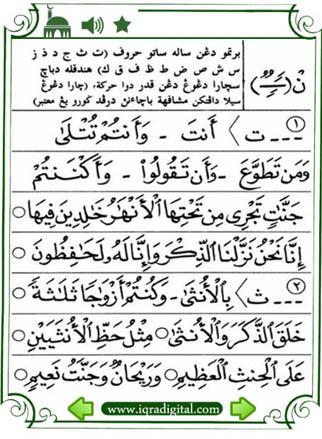 نْ(ـًـٍـٌ)
برتمو دغن ساله ساتو حروف (ت ث ج د ذ ز
س ش ص ض ط ظ ف ق ك) هندقله دباچ
سچارا دغوڠ دغن قدر دوا حركة، (چارا دغوڠ
سيلا دافتكن مشافهة باچاءن درفد ݢورو يڠ معتبر)
١ --- ت 〉 أَنتَ - وَأَنتُمْ تُتْلَىٰ
وَمَن تَطَوَّعَ - وَأَن تَقُولُوا۟ - وَأَكْنَنتُمْ
جَنَّـٰتٍ تَجْرِى مِن تَحْتِهَا ٱلْأَنْهَـٰرُ خَـٰلِدِينَ فِيهَا
إِنَّا نَحْنُ نَزَّلْنَا ٱلذِّكْرَ وَإِنَّا لَهُۥ لَحَـٰفِظُونَ
٢ --- ث 〉 بِٱلْأُنثَىٰ - وَكُنتُمْ أَزْوَٰجًا ثَلَـٰثَةً
خَلَقَ ٱلذَّكَرَ وَٱلْأُنثَىٰ مِثْلُ حَظِّ ٱلْأُنثَيَيْنِ
عَلَى ٱلْحِنثِ ٱلْعَظِيمِ وَرَيْحَانٌ وَجَنَّتُ نَعِيمٍ
www.iqradigital.com